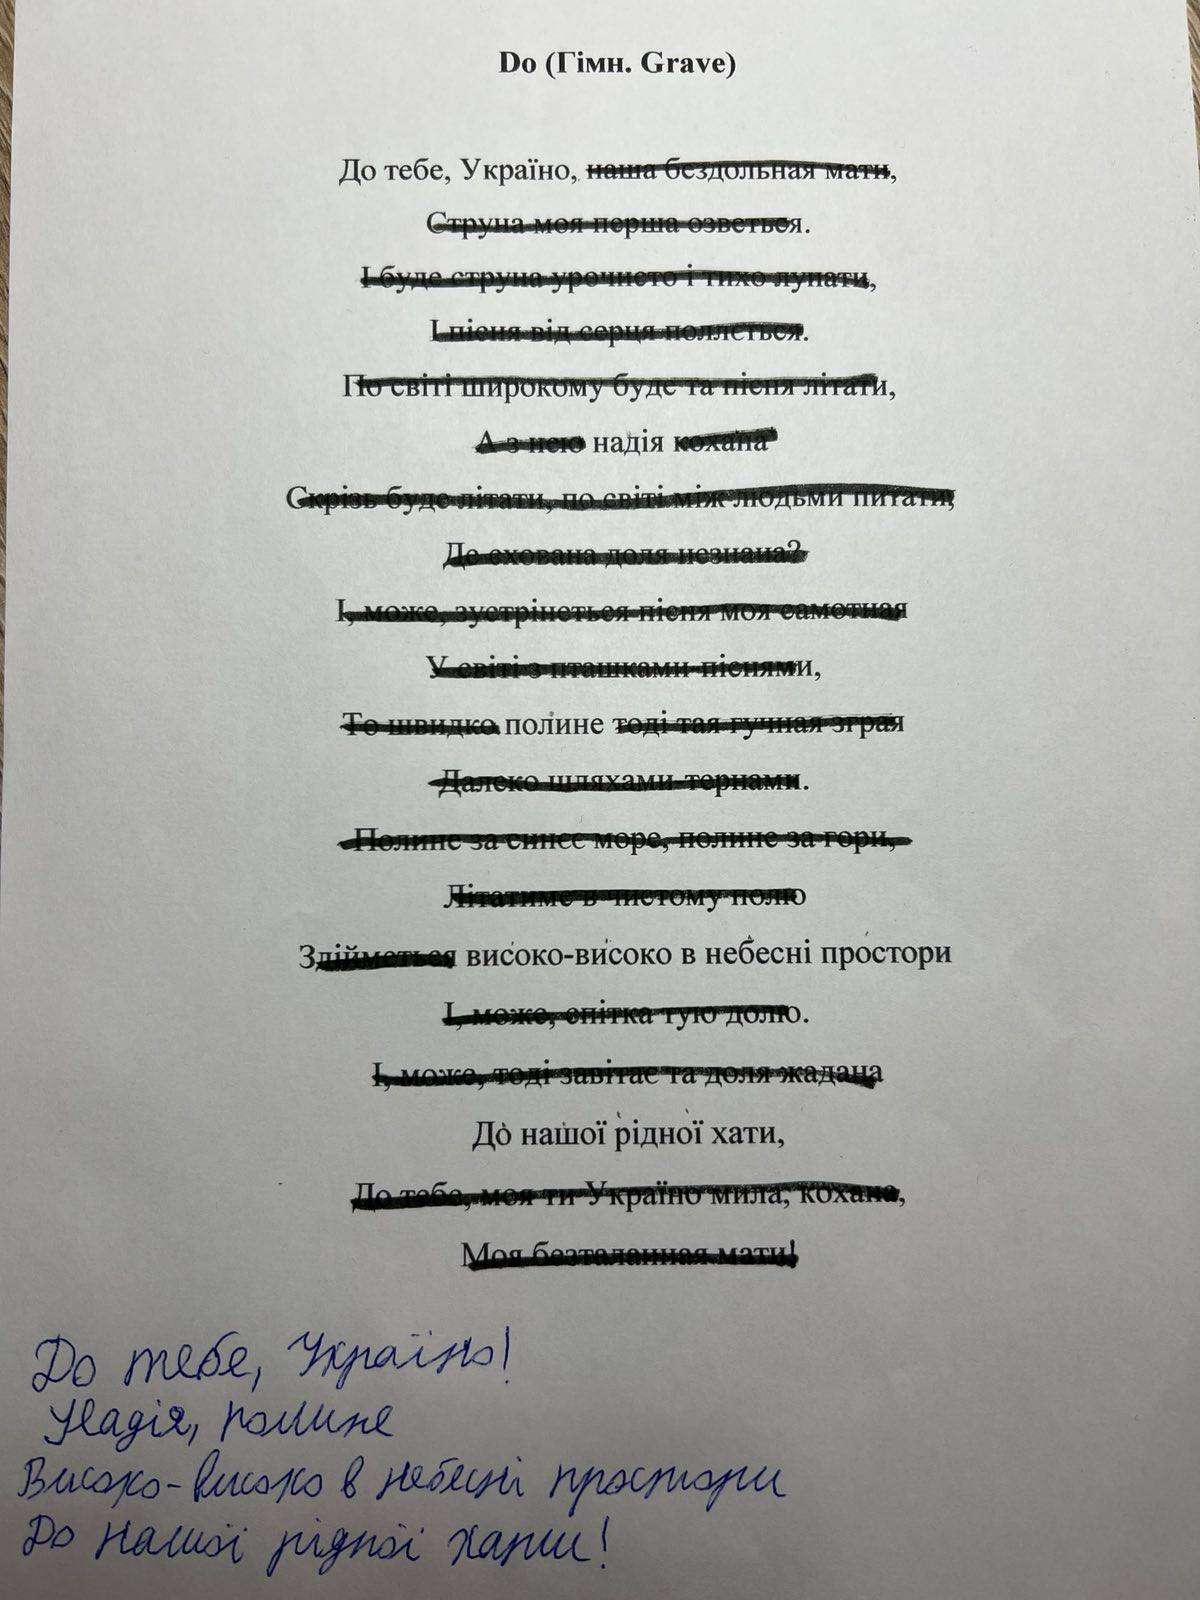 Do (Гімн. Grave)
До тебе, Україно, наша бездольная мати,
Струна моя перша озветься.
І буде струна урочисто і тихо лунати,
І пісня від серця поллється.
По світі широкому буде та пісня літати,
А з нею надія кохана
Скрізь буде літати, по світі між людьми питати,
Де схована доля незнана?
І, може, зустрінеться пісня моя самотная
У світі з пташками-піснями,
То швидко полине тоді тая гучная зграя
Далеко шляхами-тернами.
Полине за синєє море, полине за гори,
Літатиме в чистому полю
Здійметься високо-високо в небесні простори
І, може, спітка тую долю.
І, може, тоді завітає та доля жадана
До нашої рідної хати,
До тебе, моя ти Україно мила, кохана,
Моя безталанная мати!
До тебе, Україно!
Надія, полине
Високо-високо в небесні простори
До нашої рідної хати!